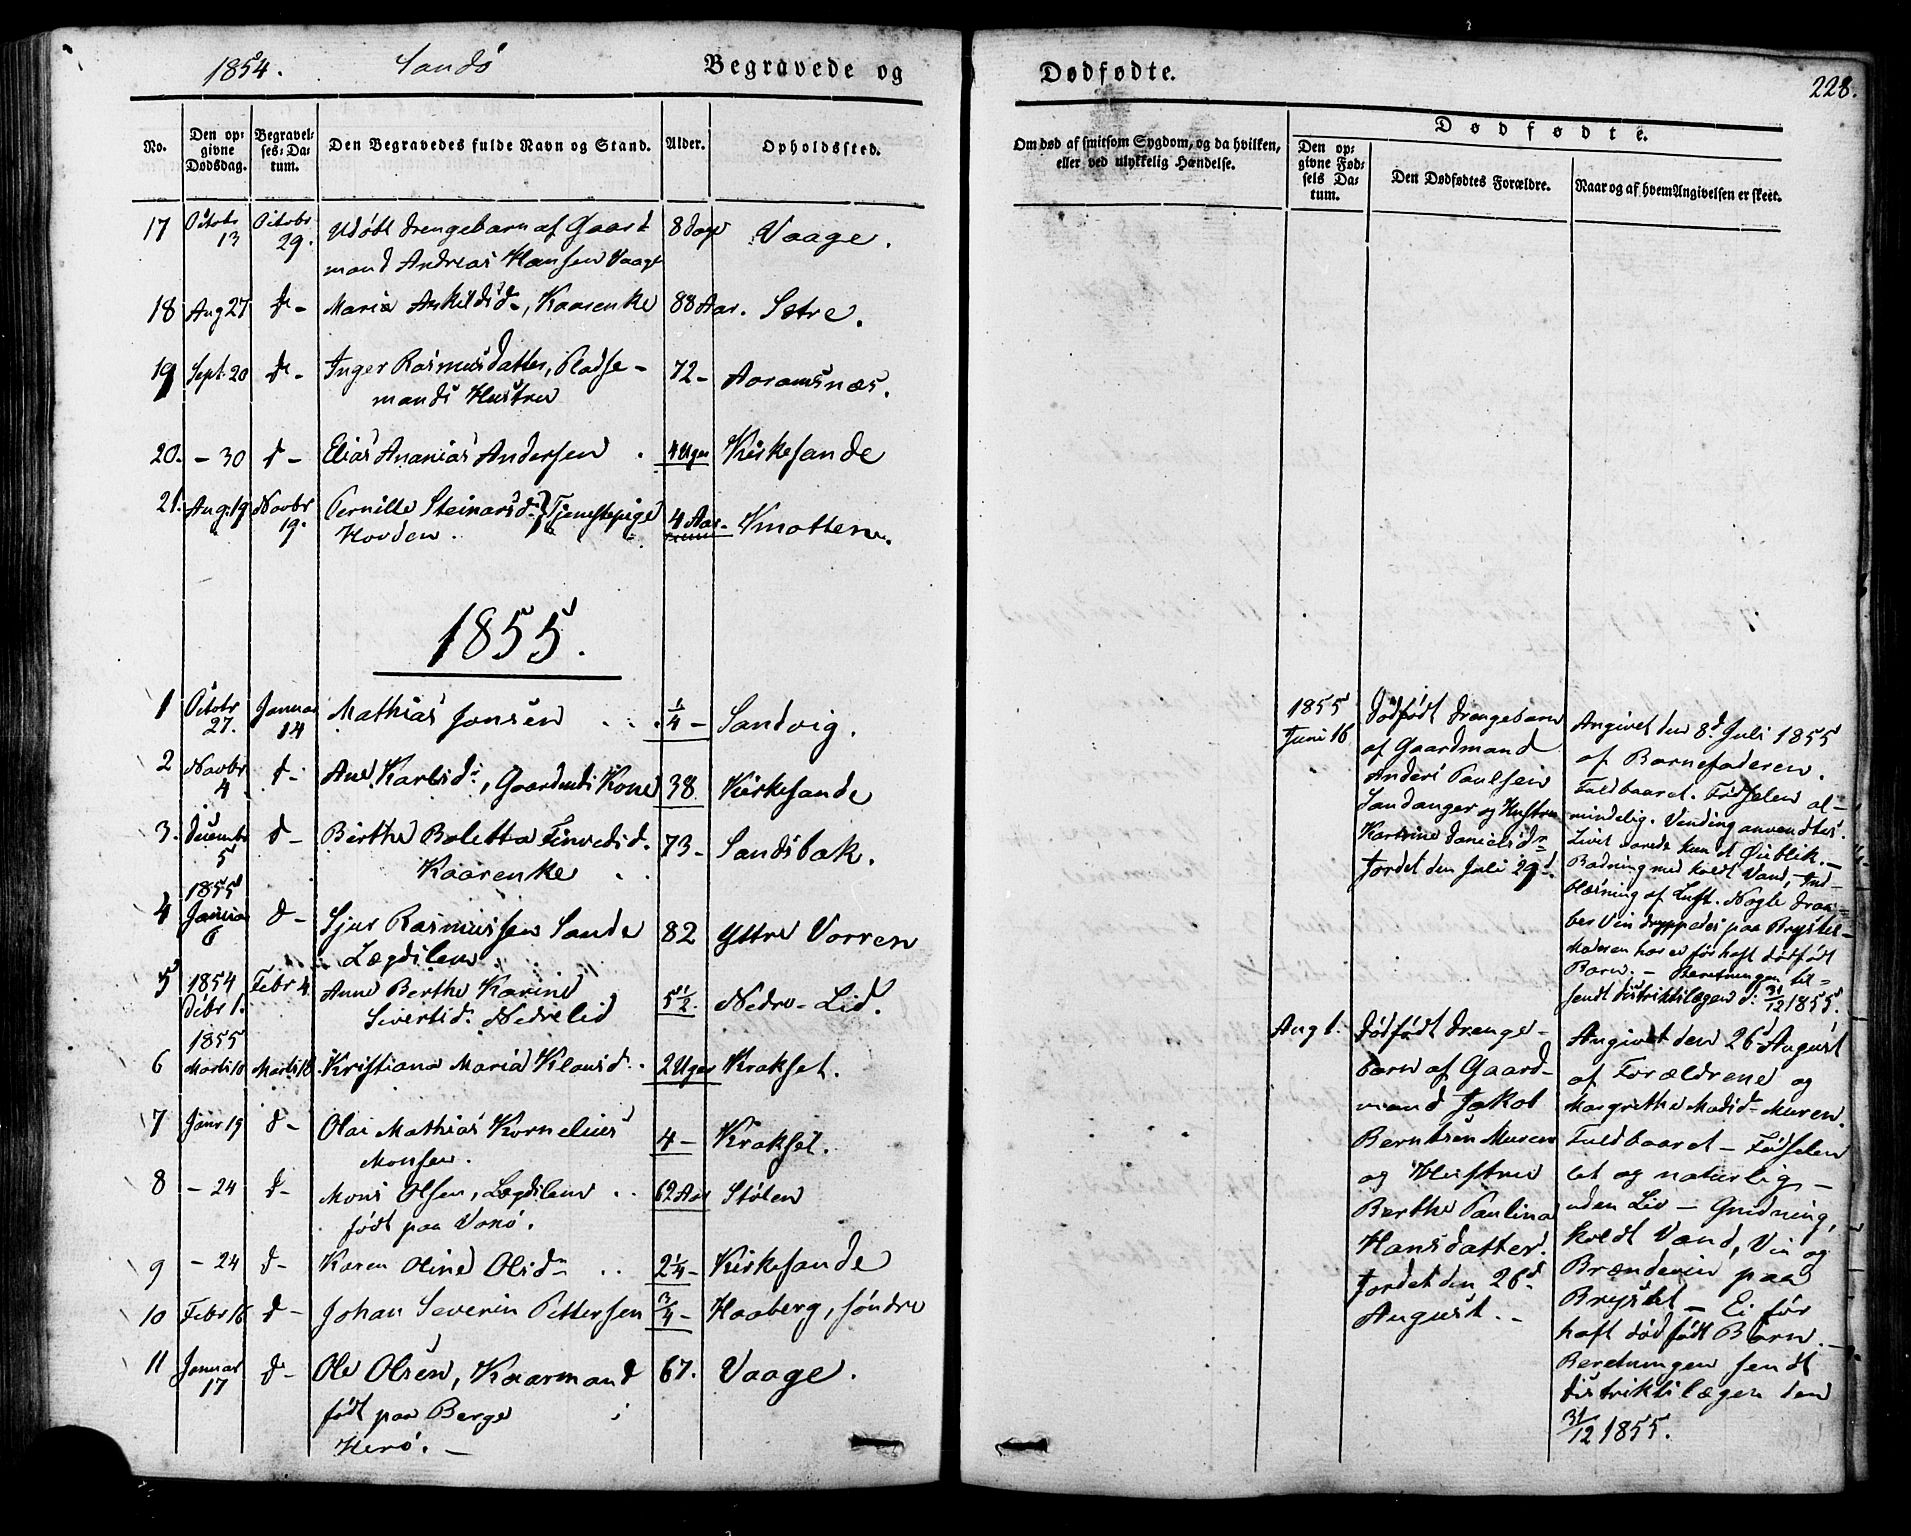 1854. Sandø Begravede og
No. Den opgivne Dødsdag. Begravelses-Datum. Den Begravedes fulde Navn og Stand. Alder. Opholdssted.
17 Octobr 13 Octobr 29. Udøbt Drengebarn af Gaard 8 Dage Vaage.
mand Andreas Hansen Vaage
18 Aug 27 do - Maria Askildsd., Kaarenke 88 Aar. Sætre.
19 Sept. 20 do - Inger Rasmusdatter, Pladse- 72 - Aaramsnæs.
mands Hustru
20. - 30 d - Elias Ananias Andersen 4 Uger Kirkesande
21. Aug. 19 Novbr 19. Pernille Steinarsd. } Tjenestepige 4 Aar - Knotten.
Hovden.
1855.
1 Octobr 27. Januar 14 Mathias Jonsen 1/4 - Sandvig.
2 Novbr 4 d - Ane Karlsd., Gaardmds Kone 38 Kirkesande
3. Decembr 5 d - Birthe Boletta Finvedsd. 73 - Sandsbak.
Kaarenke
4 1855 Januar 6 d - Sjur Rasmussen Sande 82 Yttre Vorren
Lægdslem
5 1854 Debr 1. Febr 4. Anne Berthe Karine 5 1/2 Nedre - Lid.
Sivertsd. Nedrelid
1855
6 Marts 10 Marts 18. Kristiane Maria Klausd. 2 Uger Krakset.
7 Janr 19 d - Olai Mathias Kornelius 4 - Krakset.
Monsen.
8 - 24 d - Mons Olsen, Lægdslem 62 Aar Støten
født paa Vanø.
9 - 24 d - Karen Oline Olsd. 2 1/4 - Kirkesande
10 Febr 16 d - Johan Severin Pettersen 3/4 - Haaberg, søndre
11 Januar 17 d - Ole Olsen, Kaarmand 67. Vaage.
født paa Berge i
Herø. -
Dødfødte. 228.
Om død af smitsom Sygdom, og da hvilken, eller ved ulykkelig Hændelse.
Dødfødte.
Den opgivne Fødsels Datum. Den Dødfødtes Forældre. Naar og af hvem Angivelsen er skeet.
1855
Juni 16
Dødfødt Drengebarn
af Gaardmand
Anders Paulsen
Sandanger og Hustru
Karsine Danielsd.
Jordet den Juli 29d.
Angivet den 8d Juli 1855
af Barnefaderen.
Fuldbaaret. Fødselen al-
mindelig. Vending anvendtes.
Livet varede kun et Øieblik. -
Badning med koldt Vand, Ind-
blæsning af Luft. Nogle Draa-
ber Vin dryppedes paa Brystet -
Moderen har ei før haft dødfødt
Barn. - Beretningen til-
sendt Distriktslægen d: 31/12 1855.
Aug 1.
Dødfødt Drenge-
barn af Gaard-
mand Jakob
Berntsen Muren
og Hustru
Berthe Paulina
Hansdatter.
Jordet den 26d
August. -
Angivet den 26d August
af Forældrene og
Margrethe Madsd. Muren.
Fuldbaaret - Fødselen
let og naturlig -
uden Liv - Gnidning,
koldt Vand, Vin og
Brændevin paa
Brystet - Ei før
haft dødfødt Barn. -
Beretningen sendt
Distriktslægen den
31/12 1855.